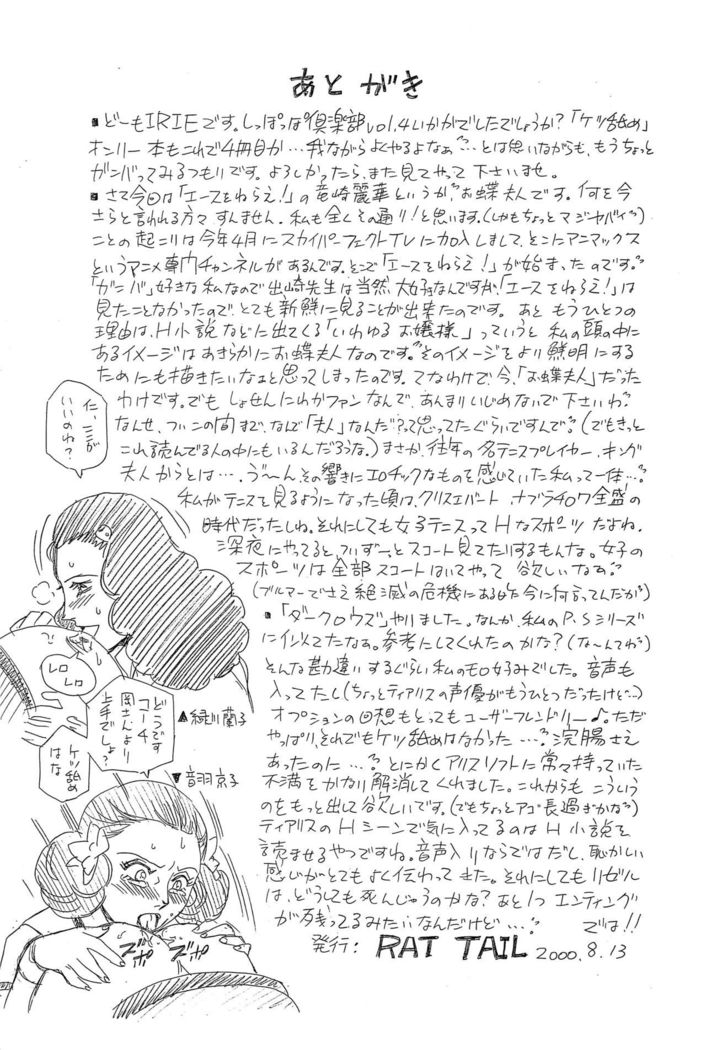 あとがき
▪どーもIRIEです。しっぽっぽ倶楽部vol.4いかがでしたでしょうか?「ケツ舐め」
オンリー本もこれで4冊目か…我ながらよくやるよなぁ〜…とは思いながらも、もうちょっと
ガンバってみるつもりです。よろしかったら、また見てやって下さいませ。
▪さて今回は「エースをねらえ!」の竜崎麗華というか、お蝶夫人です。何を今
さらと言われる方々すんません。私も全くその通り!と思います。(しかもちょっとマジヤバイ)
ことの起こりは今年4月にスカイパーフェクトTVに加入しまして、そこにアニマックス
というアニメ専門チャンネルがあるんです。そこで「エースをねらえ!」が始まったのです。
「ガンバ」好きな私なので出崎先生は当然大好なんですが「エースをねらえ!」は
見たことなかったので、とても新鮮に見ることが出来たのです。あともうひとつの
理由は、H小説などに出てくる「いわゆるお嬢様」っていうと私の頭の中に
あるイメージはあきらかにお蝶夫人なのです。そのイメージをより鮮明にする
ためにも描きたいなぁと思ってしまったのです。てなわけで、今、「お蝶夫人」だった
わけです。でもしょせんにわかファンなんで、あんまりいじめないで下さいね。
なんせ、ついこの間まで、なんで「夫人」なんだ?って思ってたぐらいですんで。(でもきっと
これ読んでる人の中にもいるんだろうな。)まさか、往年の名テニスプレイヤー、キング
夫人からとは…。う〜ん、その響きにエロチックなものを感じていた私って一体…?
私がテニスを見るようになった頃は、クリスエバート、ナブラチロワ全盛の
時代だったしね。それにしても女子テニスってHなスポーツだよね。
深夜にやってると、ついずーっとスコート見てたりするもんな。女子の
スポーツは全部スコートはいてやって欲しいなぁ。
(ブルマーでさえ絶滅の危機にある時に今に何言ってんだか)
▪「ダークロウズ」やりました。なんか、私のP.Sシリーズ
に似てたなぁ。参考にしてくれたのかな?(な〜んてね)
そんな勘違いするぐらい私のモロ好みでした。音声も
入ってたし(ちょっとティアリスの声優がもうひとつだったけど…)
オプションの回想もとってもユーザーフレンドリー♪。ただ
やっぱり、それでもケツ舐めはなかった…。浣腸さえ
あったのに…?とにかくアリスソフトに常々持っていた
不満をかなり解消してくれました。これからもこういう
のをもっと出して欲しいです。(でもちょっとアゴ長過ぎかな)
ティアリスのHシーンで気に入ってるのはH小説を
読ませるやつですね。音声入りならではだし、恥かしい
感じがとてもよく伝わってきた。それにしてもリゼル
は、どうしても死んじゃうのかな?あと1つエンディング
が残ってるみたいなんだけど…。では!!
発行: RAT TAIL 2000.8.13
に、ここが
いいのね?
レロ
レロ
▲緑川蘭子
どうです
コーチ
岡さんより
上手でしょ?
ケツ舐め
はな
▼音羽京子
ズポ
ズポ